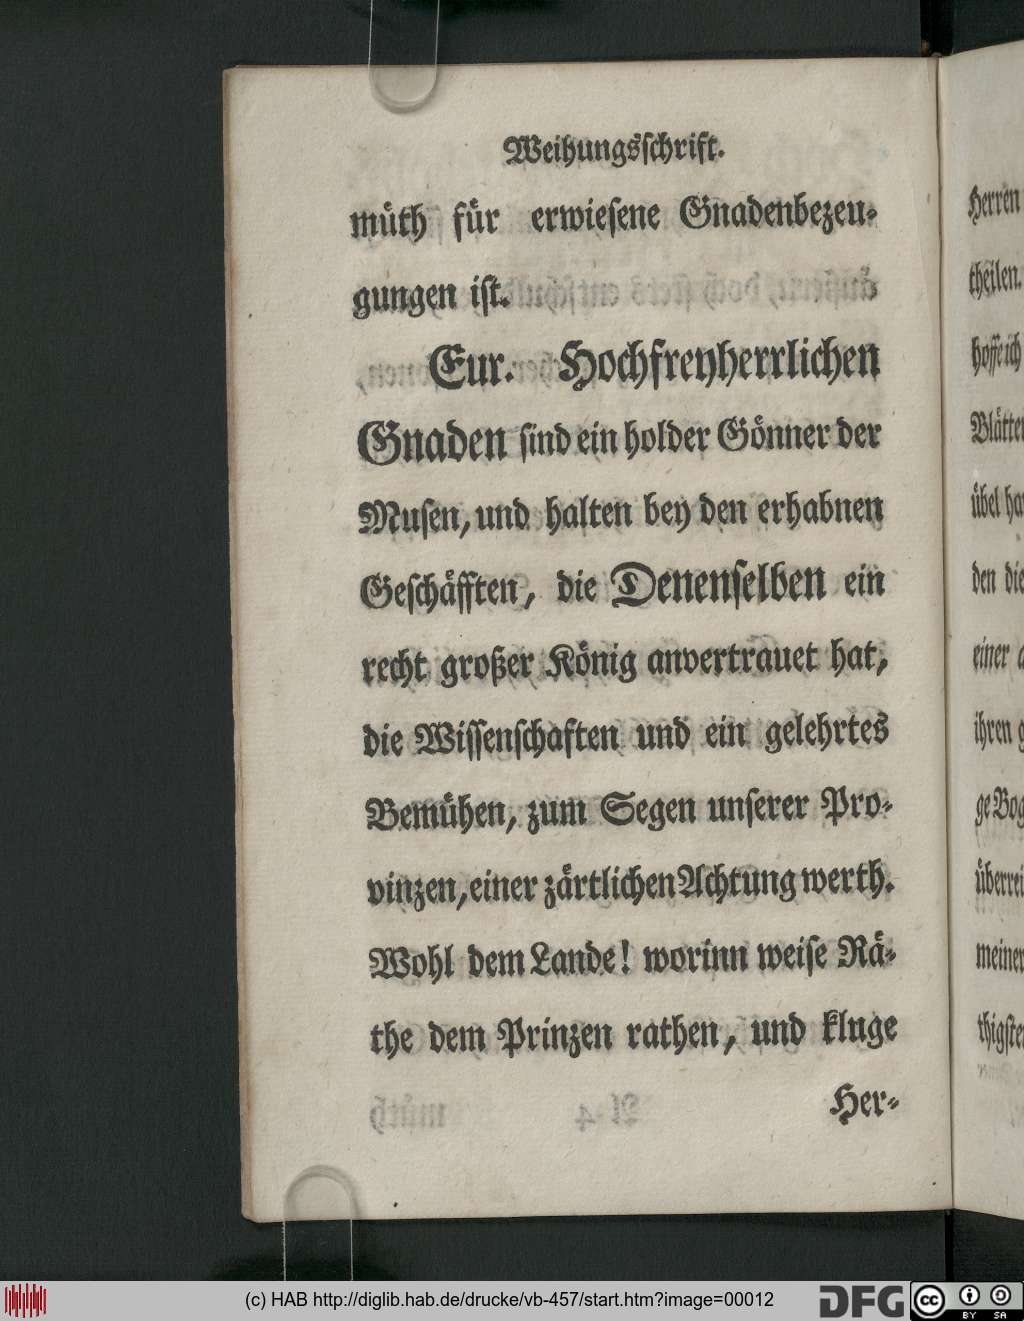 Weihungsschrift.
müth für erwiesene Gnadenbezeu-
gungen ist.
Eur. Hochfreyherrlichen
Gnaden sind ein holder Gönner der
Musen, und halten bey den erhabnen
Geschäfften, die Denenselben ein
recht großer König anvertrauet hat,
die Wissenschaften und ein gelehrtes
Bemühen, zum Segen unserer Pro-
vinzen, einer zärtlichen Achtung werth.
Wohl dem Lande! worinn weise Rä-
the dem Prinzen rathen, und kluge
Her-
Herren
theilen.
hoffe ich
übel
den die
einer
ihren
meiner
(c) HAB http://diglib.hab.de/drucke/vb-457/start.htm?image=00012
DFG
cc BY SA